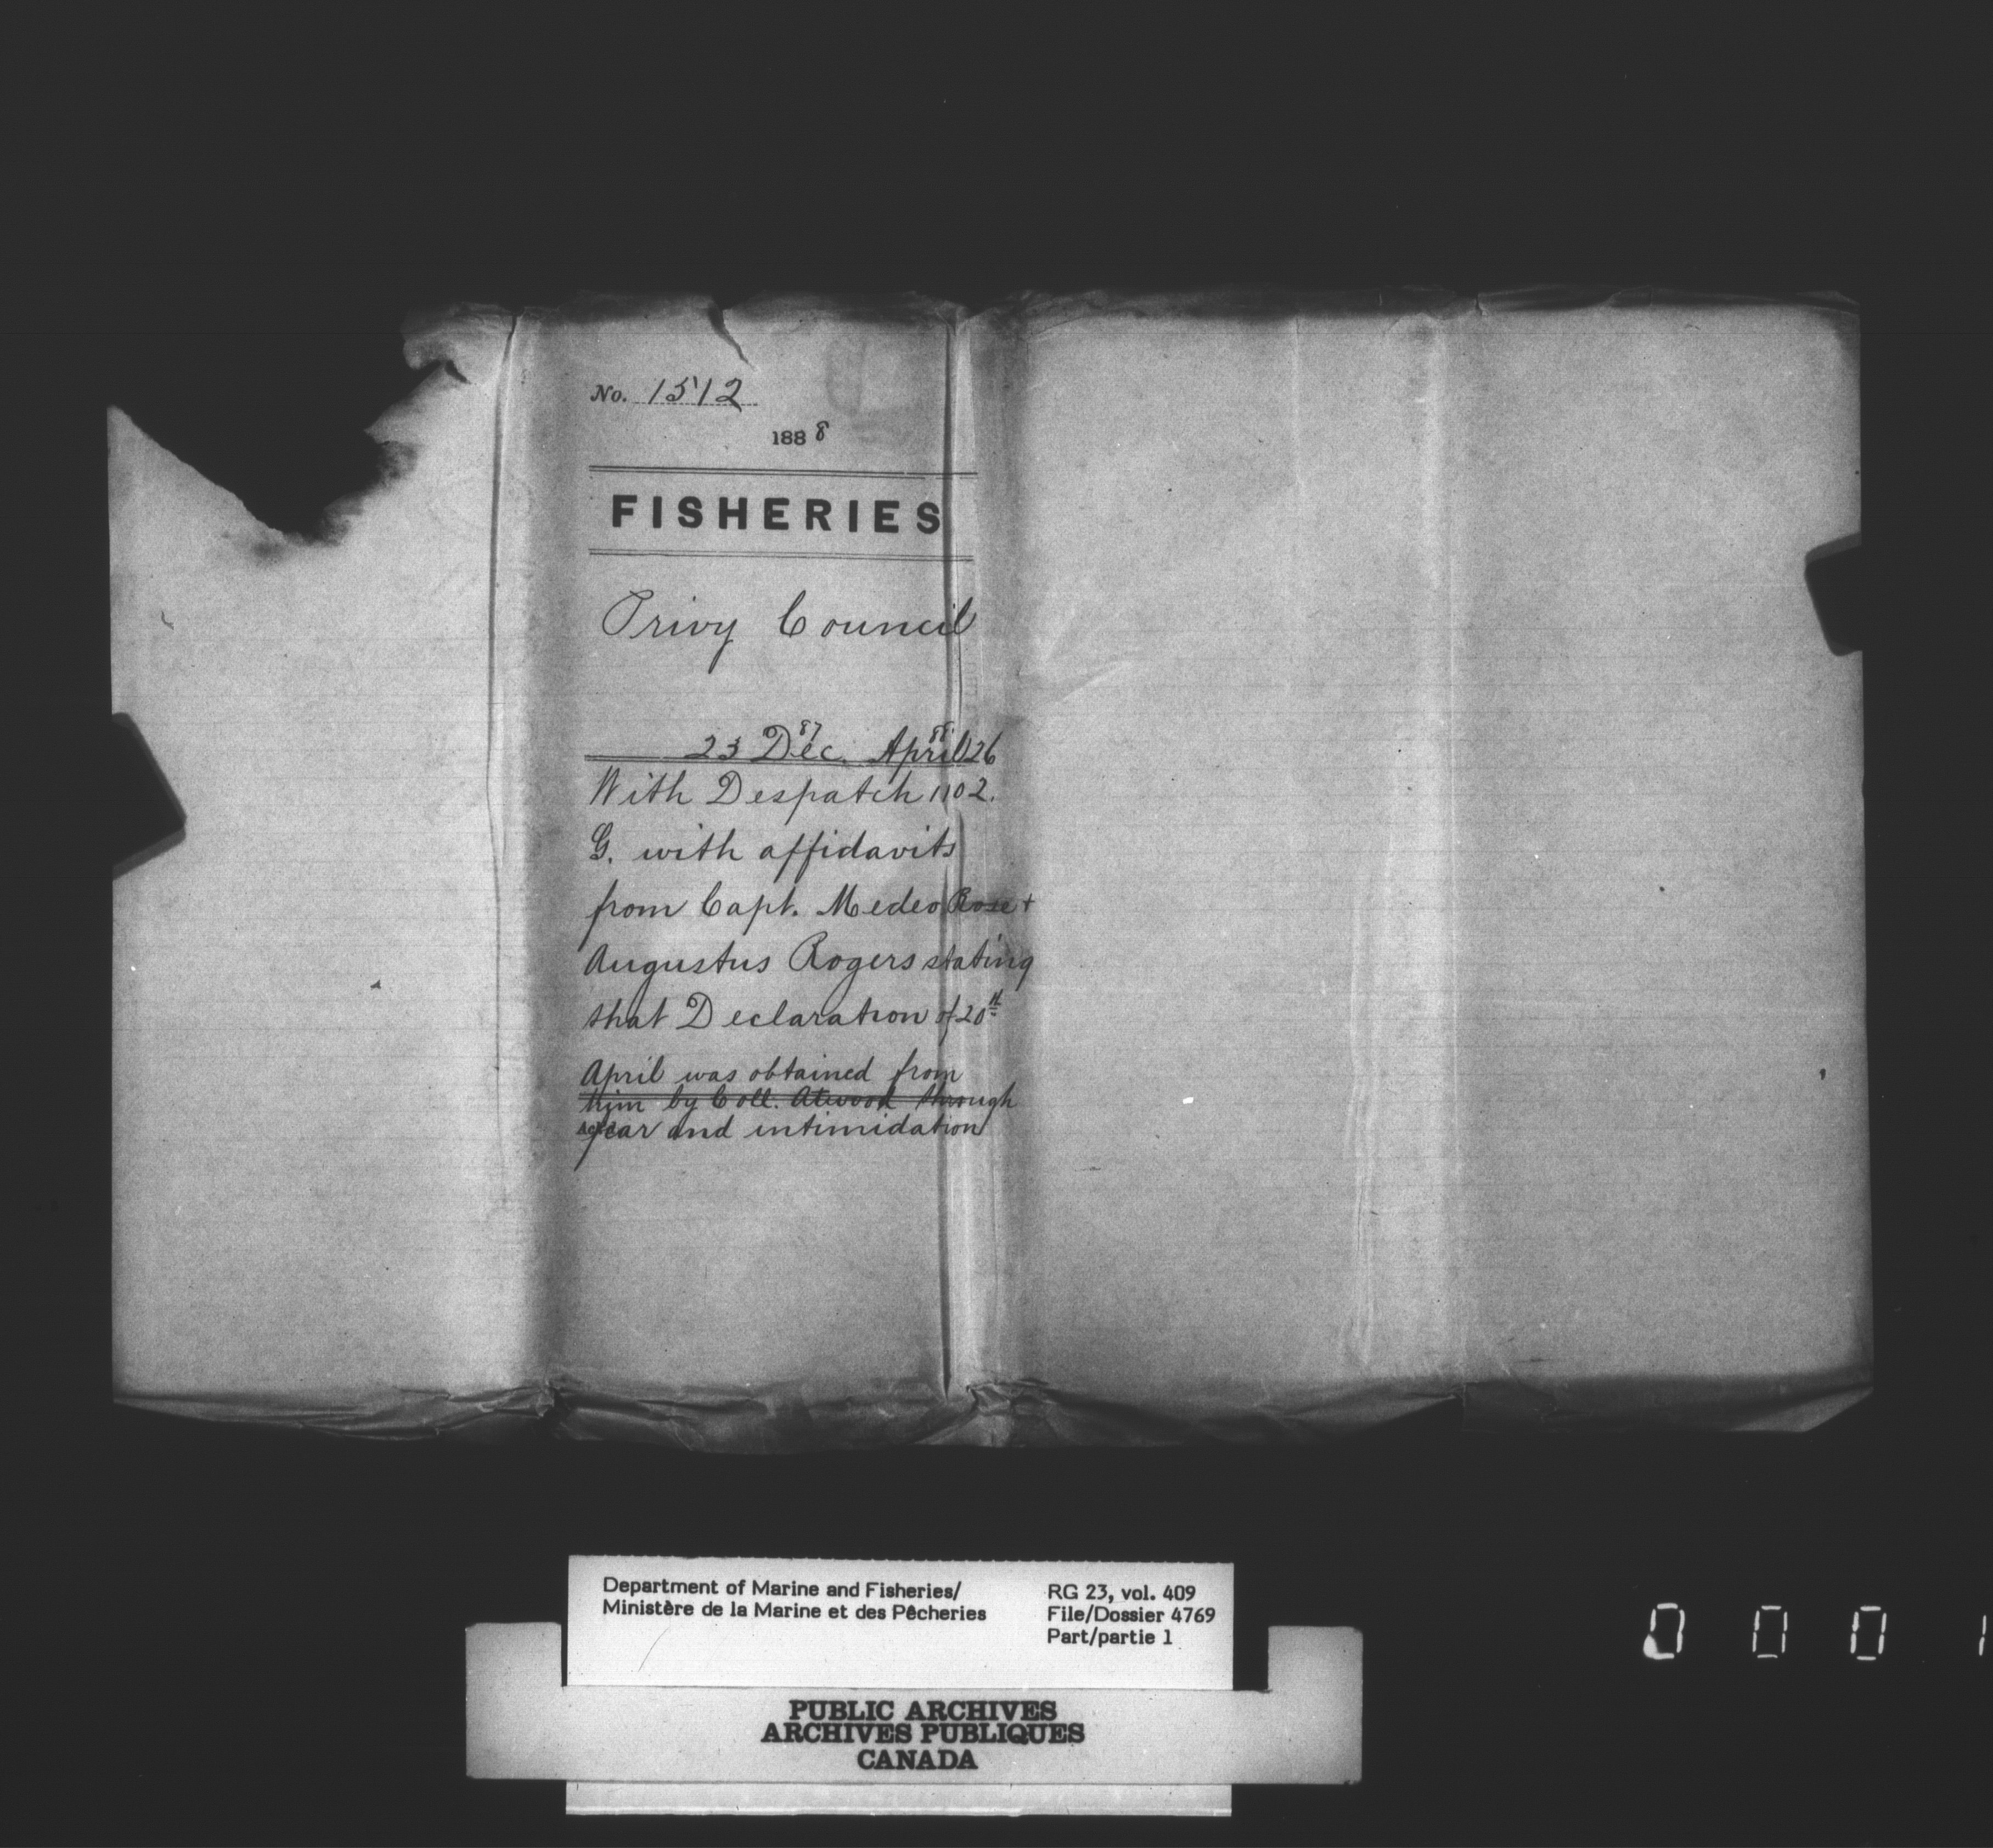 No. 1512
1888
FISHERIES
Privy Council
23 Dec. 87 April 26
With Despatch 1102.
G. with affidavits
from Capt. Medeo Rose +
Augustus Rogers stating
that Declaration of 20th
April was obtained from
him by Coll. Atwood through
fear and intimidation
Department of Marine and Fisheries/
Ministère de la Marine et des Pêcheries
RG 23, vol. 409
File/Dossier 4769
Part/partie 1
PUBLIC ARCHIVES
ARCHIVES PUBLIQUES
CANADA
0 0 0 1